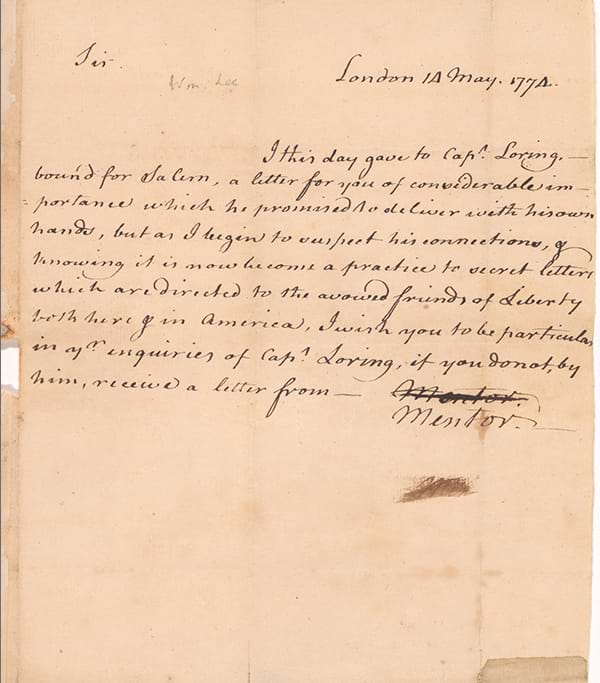 Sir.
Wm. Lee
London 14 May. 1774.
I this day gave to Capt. Loring. —
bound for Salem, a letter for you of considerable im-
portance which he promised to deliver with his own
hands, but as I begin to suspect his connections, &
knowing it is now become a practice to secret letters
which are directed to the avowed friends of Liberty
both here & in America, I wish you to be particular
in yr. enquiries of Capt. Loring, if you do not, by
him, receive a letter from —
Mentor.
Mentor.